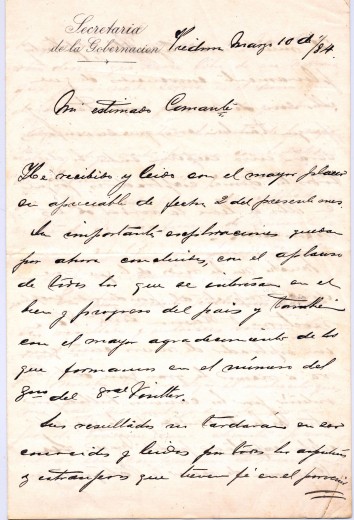 Secretaria
de la Gobernacion
Viedma Mayo 10 de /84.
Mi estimado Comante
He recibido y leido con el mayor placer
su apreciable de fecha 2 del presente mes.
Su importante esploraciones quedan
por ahora concluidas, con el aplauso
de todos los que se interesan en el
bien y progreso del pais y tambien
con el mayor agradecimiento de los
que formamos en el número del
del Gral Vintter.
Sus resultados no tardarán en ser
conocidos y leidos por todos los
y estranjeros que tienen fé en el porvenir